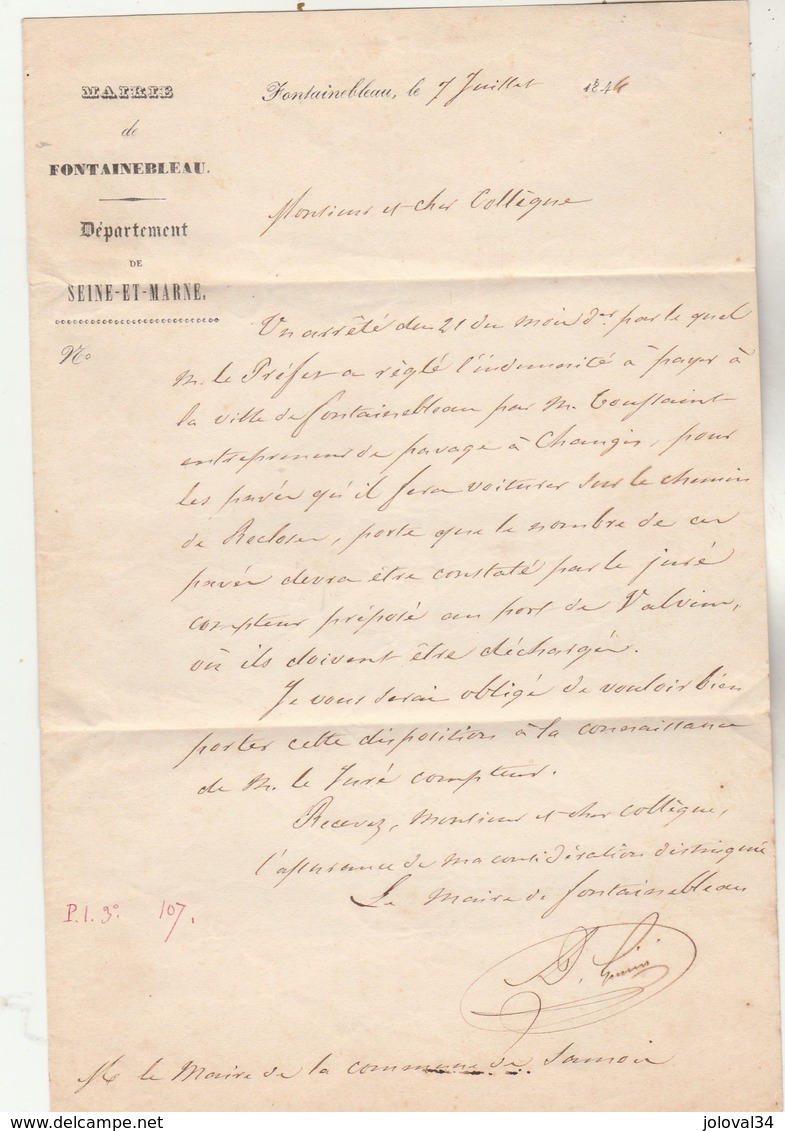 MAIRIE
de
FONTAINEBLEAU.
Département
DE
SEINE-ET-MARNE.
No
Fontainebleau, le 7 Juillet 184
Monsieur et cher Collègue
Un arrêté du 21 du mois der par le quel
M. le Préfet a règlé l'indemnité à payer à
la ville de fontainebleau par M. Toussaint
entrepreneur de pavage à Changis, pour
les pavés qu'il fera voiturer sur le chemin
de Recloses, porte que le nombre de ces
pavés devra être constaté par le juré
compteur préposé au port de Valvins,
où ils doivent être déchargés.
Je vous serai obligé de vouloir bien
porter cette disposition à la connaissance
de M. le Juré compteur.
Recevez, Monsieur et cher Collègue,
l'assurance de ma considération distinguée
Le Maire de fontainebleau
D. Guérin
P.1.3o 107.
M. le Maire de la commune de Samois
www.delcampe.net
joloval34